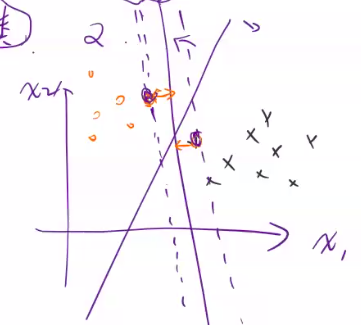 2.
x₂
x₁